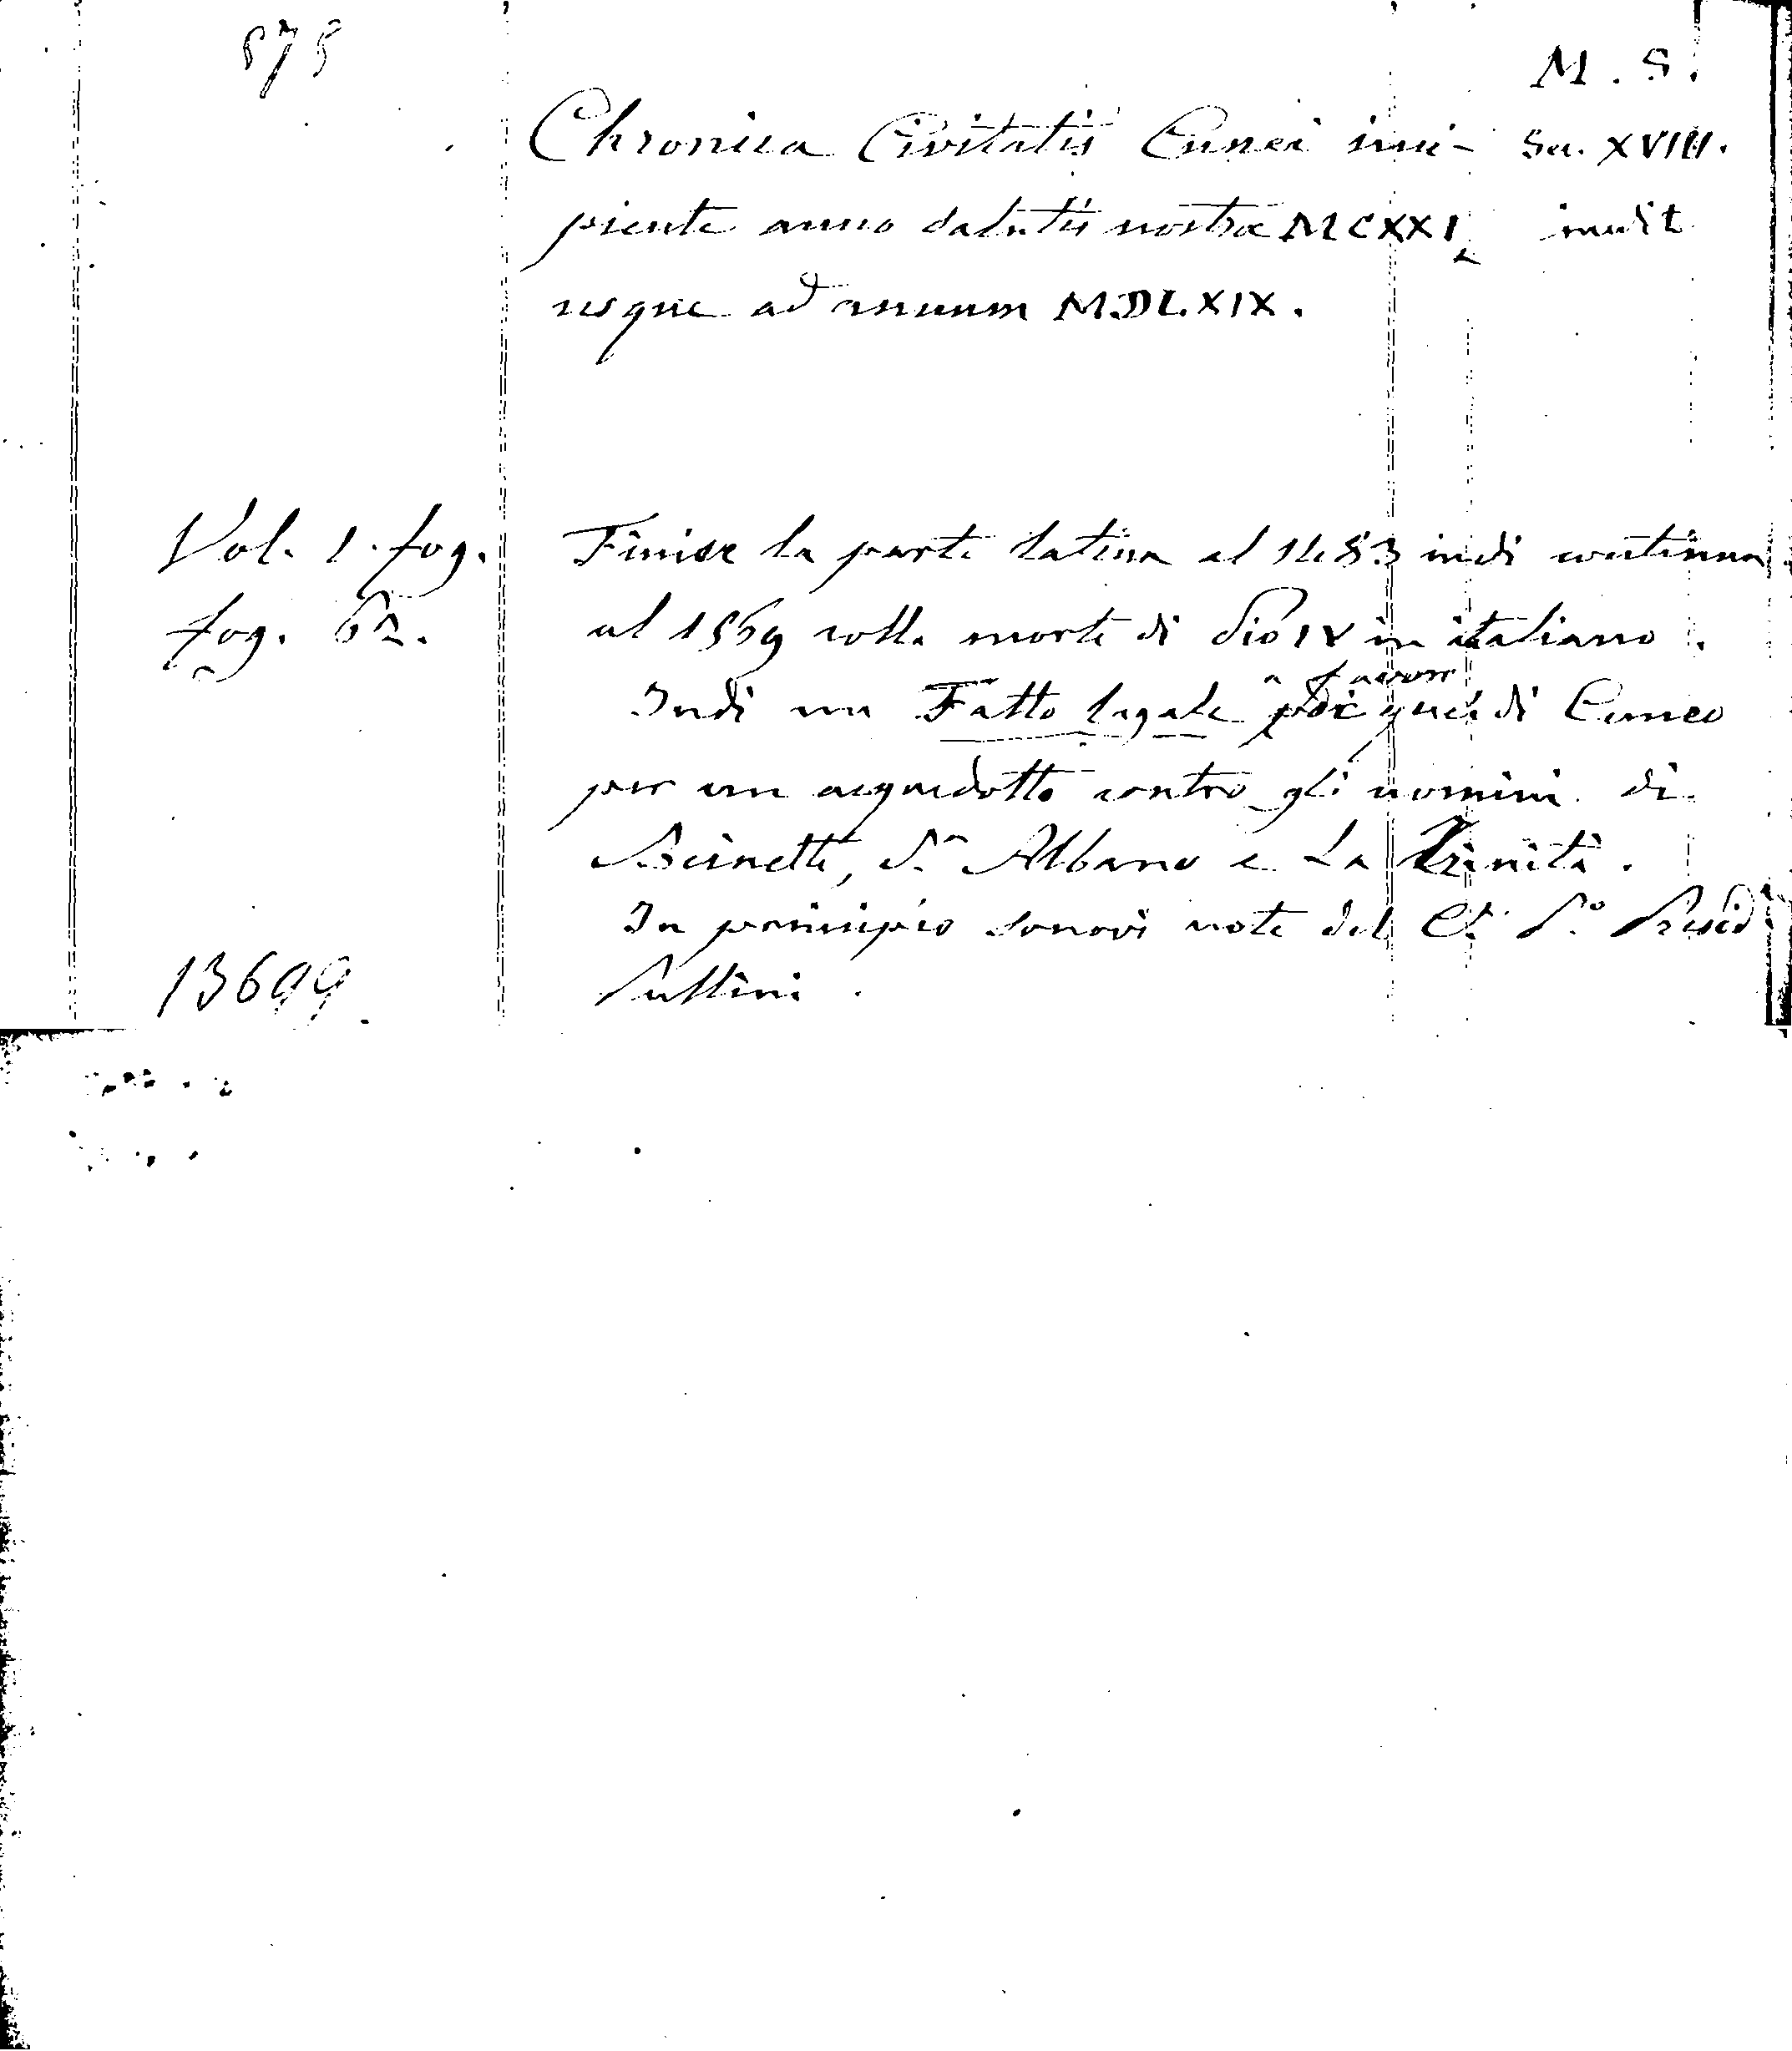 575
M. S.
Chronica Civitatis Cunei inci- Sec. XVIII.
piente anno salutis nostræ MCXXI inedit
usque ad annum MDLXIX.
Vol. 1. fog. Finisce la parte latina al 1483 indi continua
fog. 62. al 1569 colla morte di Pio IV in italiano.
a favor
Indi un Fatto legale per quei di Cuneo
per un acquedotto contro gli uomini di
Beinette, S.n Albano e La Trinità.
In principio sonovi note del Sr. Presid
13699. Pullini.